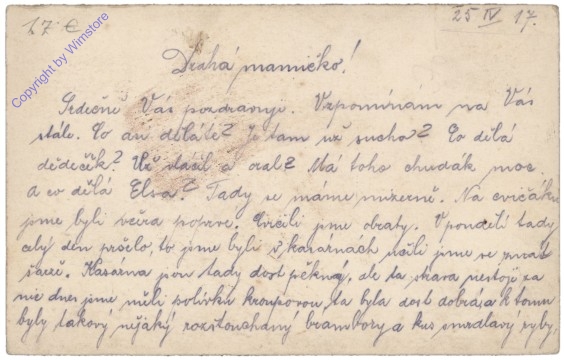 17 €
25 IV 17.
Copyright by Wimstore
Drahá mamičko!
Srdečně Vás pozdravuji. Vzpomínám na Vás
stále. Co asi děláte? Je tam už sucho? Co dělá
dědeček? Už vláčil a oral? Má toho chudák moc.
a co dělá Elsa? Tady se máme mizerně. Na cvičáku
jsme byli včera poprvé. Cvičili jsme obraty. V pondělí tady
celý den pršelo, to jsme byli v kasárnách učili jsme se znát
šarže. Kasárna jsou tady dost pěkný, ale ta strava nestojí za
nic dnes jsme měli polívku kroupovou, ta byla dost dobrá, a k tomu
byly takový nějaký rozšťouchaný brambory a kus smrdlavý ryby,